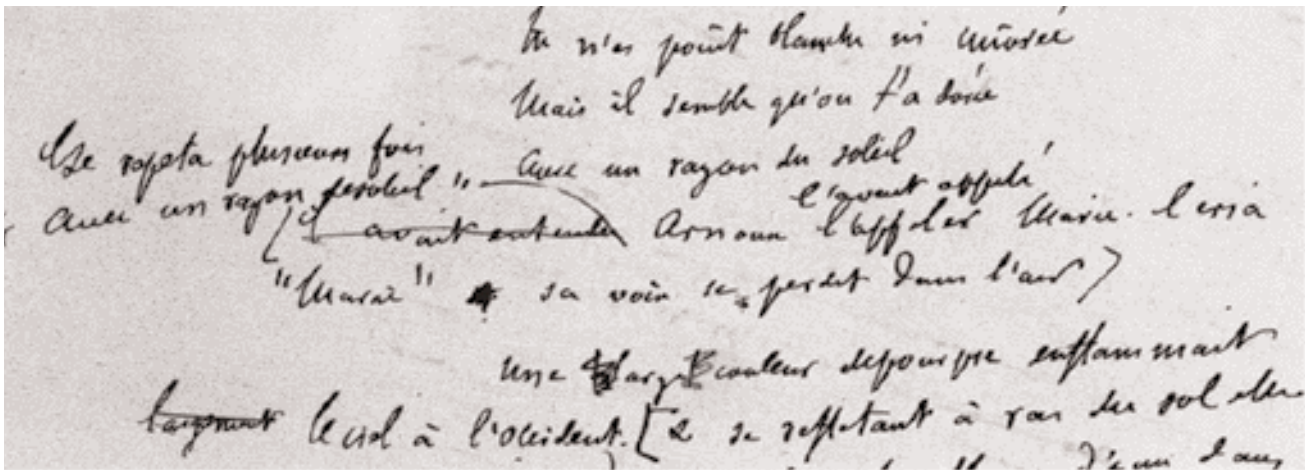 Tu n'es point blanche ni cuivrée
Mais il semble qu'on t'a dorée
Avec un rayon du soleil
Il se répéta plusieurs fois
Avec un rayon de soleil"
l'avait appelé
(Il avait entendu Arnoux l'appeler Marie. Il cria
"Marie" sa voix se perdit dans l'air)
Une large couleur de pourpre enflammait
largement le ciel à l'occident. [& se reflétant à ras du sol elle
d'un dans